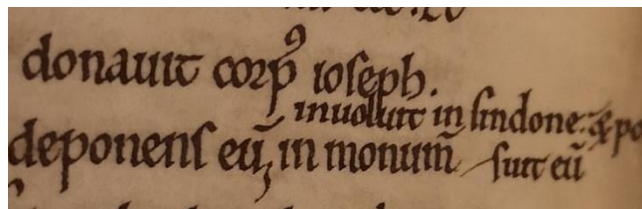 donauit corpꝰ ioseph.
inuoluit in sindone: ⁊ po
deponens eū, in monum̄ suit eū